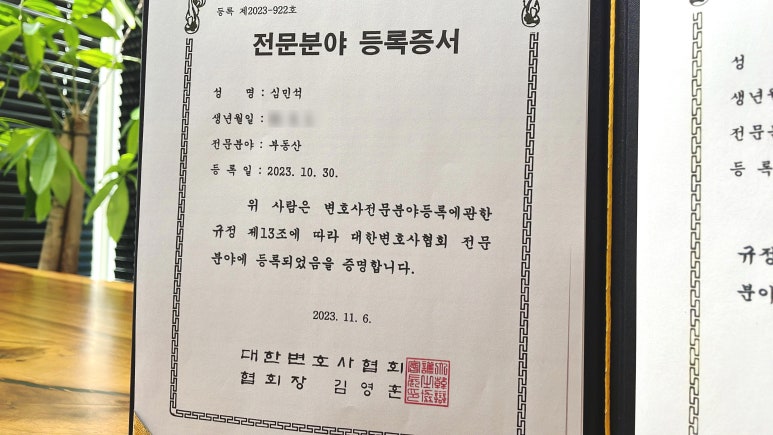 등록 제2023-922호
전문분야 등록증서
성 명 : 심민석
생년월일 :
전문분야 : 부동산
등 록 일 : 2023. 10. 30.
위 사람은 변호사전문분야등록에관한
규정 제13조에 따라 대한변호사협회 전문
분야에 등록되었음을 증명합니다.
2023. 11. 6.
대한변호사협회
협회장 김영훈
성
생년월
전문분
등 록
규정
분야